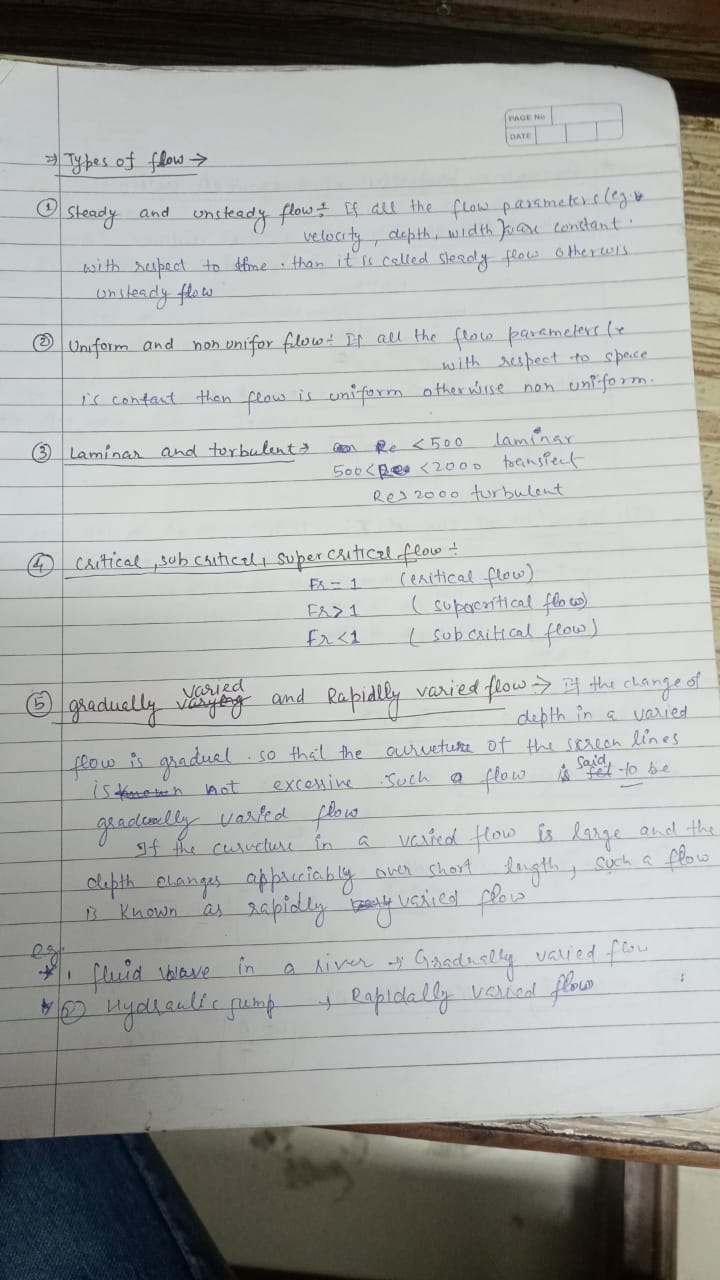 PAGE No
DATE
⇒ Types of flow →
① Steady and unsteady flow ÷ If all the flow parameters (eg.
velocity, depth, width) are constant
with respect to time. than it is called steady flow otherwis
unsteady flow
② Uniform and non unifor flow ÷ If all the flow parameters
with respect to space
is contant then flow is uniform otherwise non uniform.
③ Laminar and turbulent → Re < 500 laminar
500 < Re < 2000 transient
Re > 2000 turbulent
④ Critical, sub critical, super critical flow ÷
Fr = 1 (critical flow)
Fr > 1 (supercritical flow)
Fr < 1 (sub critical flow)
⑤ gradually varied and Rapidlly varied flow → If the change of
depth in a varied
flow is gradual. so that the curveture of the screen lines
is not excessive such a flow is said to be
gradually varied flow
If the curvcture in a varied flow is large and the
depth changes appreciably over short length, such a flow
is known as rapidly varied flow
eg.
* 1. fluid wave in a river → Gradually varied flow
* ② Hydraulic jump → Rapidally varied flow